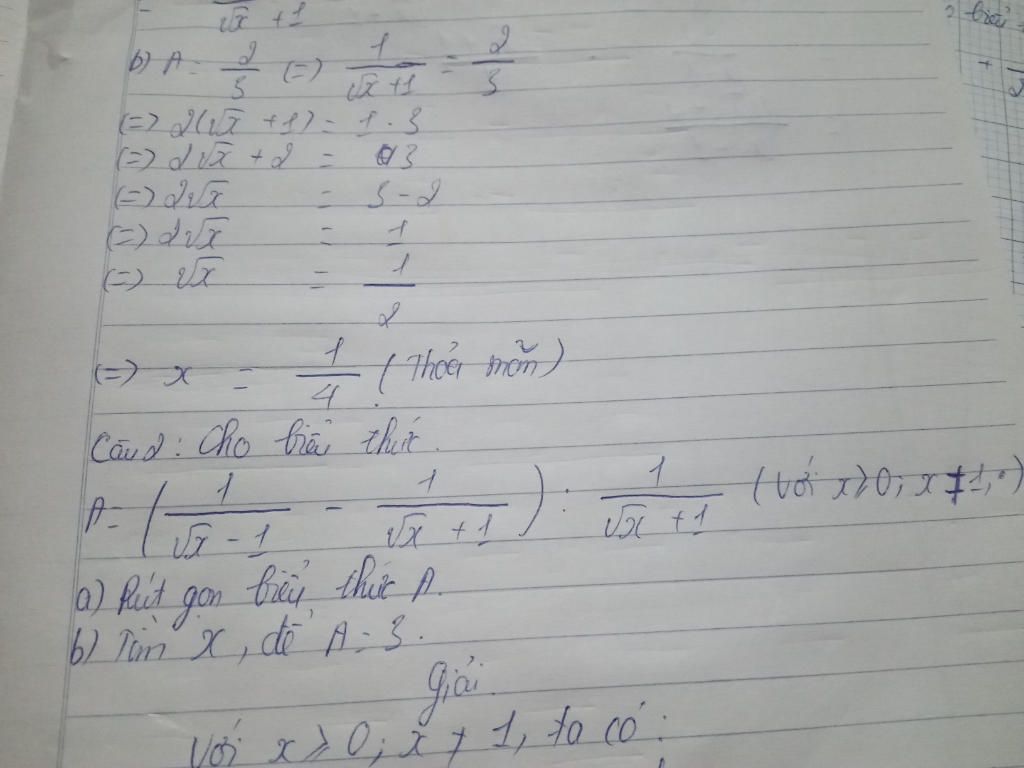 √x + 1
b) A = 2/3 (=) 1/(√x+1) = 2/3
(=) 2(√x + 1) = 1 . 3
(=) 2√x + 2 = 3
(=) 2√x = 3 - 2
(=) 2√x = 1
(=) √x = 1/2
(=) x = 1/4 (Thỏa mãn)
Câu 2: Cho biểu thức.
A = (1/(√x - 1) - 1/(√x + 1)) : 1/(√x + 1) (với x ≥ 0; x ≠ 1)
a) Rút gọn biểu thức A.
b) Tìm x, để A = 3.
Giải.
Với x ≥ 0; x ≠ 1, ta có: